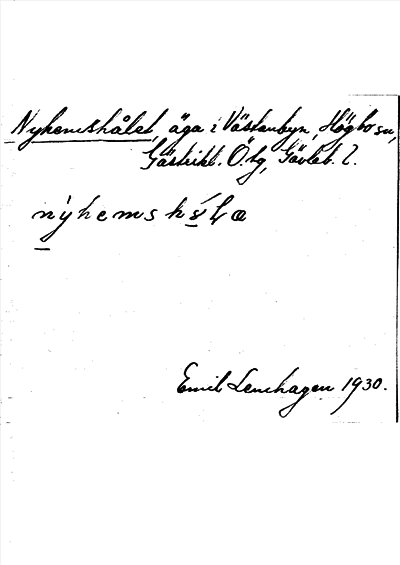 Nyhemshålet, äga i Västanbyn, Högbo sn,
Gästrikl. Ö. tg, Gävleb. l.
nyhemshɷ́l̥æ
Emil Lenhagen 1930.